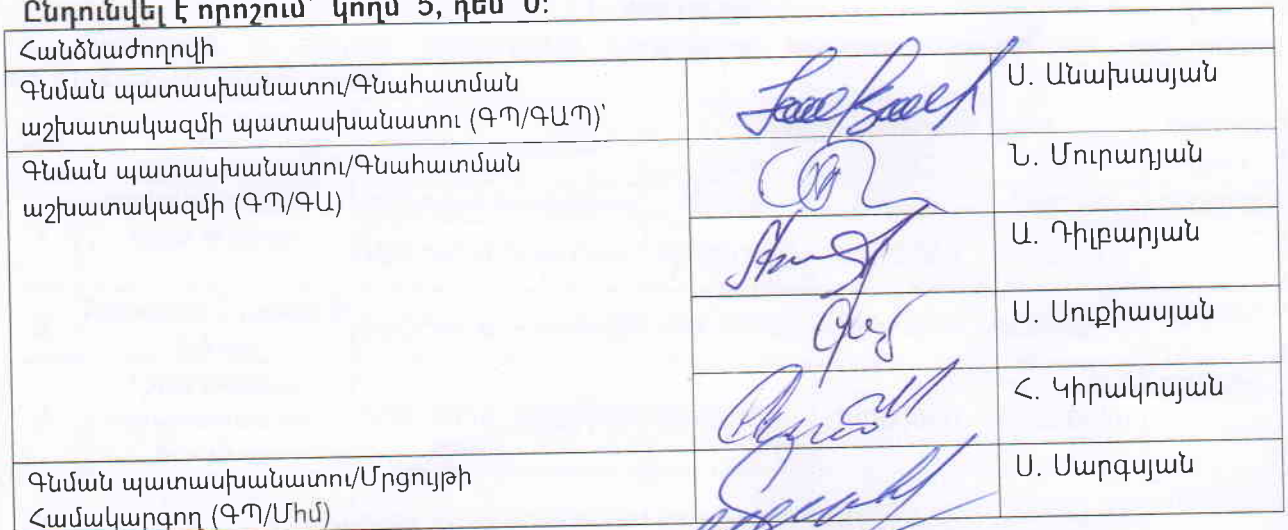 Ընդունվել է որոշում՝ կողմ՝ 5, դեմ՝ 0:
Հանձնաժողովի
Գնման պատասխանատու/Գնահատման
աշխատակազմի պատասխանատու (ԳՊ/ԳԱՊ)՝
Ս. Անախասյան
Գնման պատասխանատու/Գնահատման
աշխատակազմի (ԳՊ/ԳԱ)
Ն. Մուրադյան
Ա. Դիլբարյան
Ս. Սուքիասյան
Հ. Կիրակոսյան
Գնման պատասխանատու/Մրցույթի
Համակարգող (ԳՊ/Միմ)
Ս. Սարգսյան